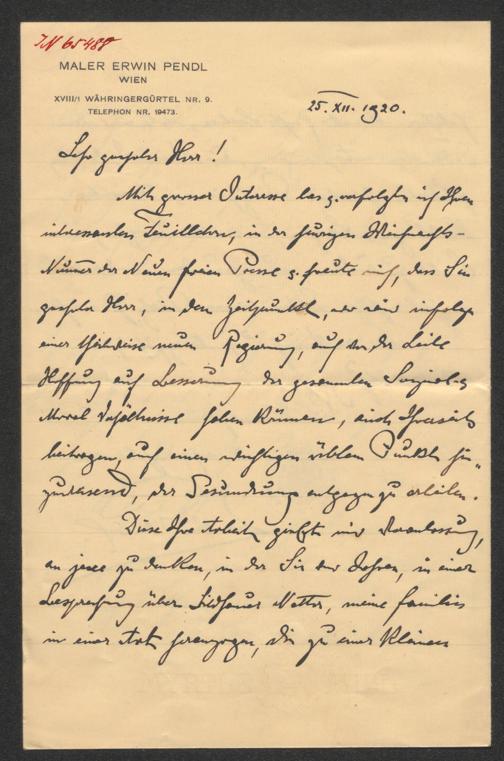 IN 65488
MALER ERWIN PENDL
WIEN
XVIII/1 WÄHRINGERGÜRTEL NR. 9.
TELEPHON NR. 19473.
25. XII. 1920.
Sehr geehrter Herr!
Mit grossem Interesse las u. verfolgte ich Ihren
interessanten Feuilleton, in der heurigen Weihnachts-
Nummer der Neuen freien Presse u. freute mich, dass Sie
geehrter Herr, in dem Zeitpunkte, wo wir infolge
einer theilweise neuen Regierung, auf der
Hoffnung auf Besserung der gesammten Social- u.
Moral Verhältnisse haben können, auch Ihrerseits
beitragen, auf einen wichtigen üblen Punkt hin-
zuweisend, der Gesundung entgegen zu arbeiten.
Diese Ihre Arbeit giebt mir Veranlassung,
an jene zu denken, in der Sie vor Jahren, in einer
Besprechung über Bildhauer Natter, meine Familie
in einer Art heranzogen, die zu einer kleinen